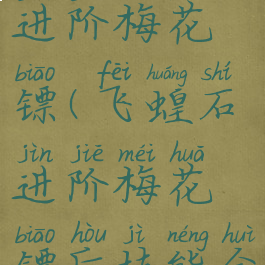 进阶梅花
biāo fēi huáng shí
镖(飞蝗石
jìn jiē méi huā
进阶梅花
biāo hòu jì néng huì
镖后技能会